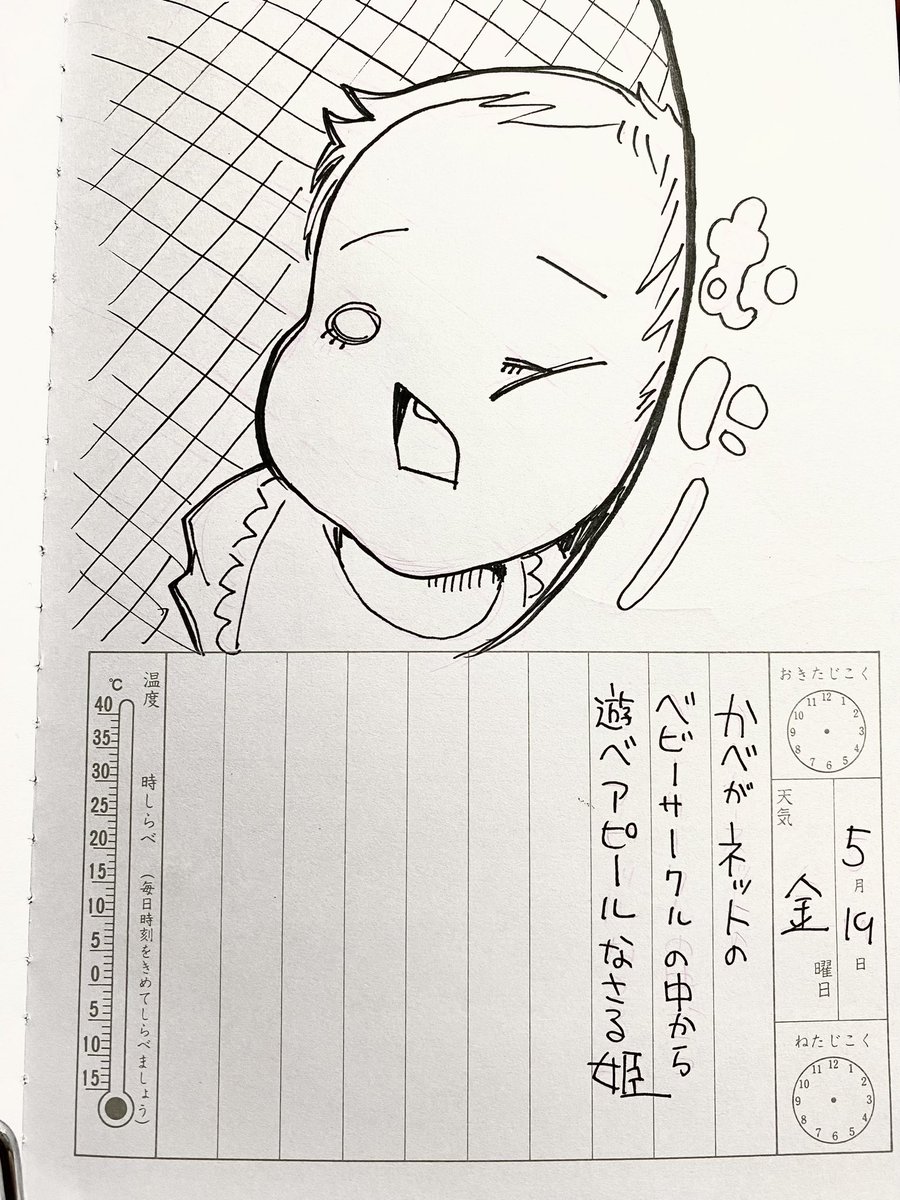 むにー
おきたじこく
12 1 2 3 4 5 6 7 8 9 10 11
5月19日
天気
金曜日
ねたじこく
12 1 2 3 4 5 6 7 8 9 10 11
かべがネットの
ベビーサークルの中から
遊べアピールなさる姫
温度 時しらべ (毎日時刻をきめてしらべましょう)
℃
40
35
30
25
20
15
10
5
0
5
10
15